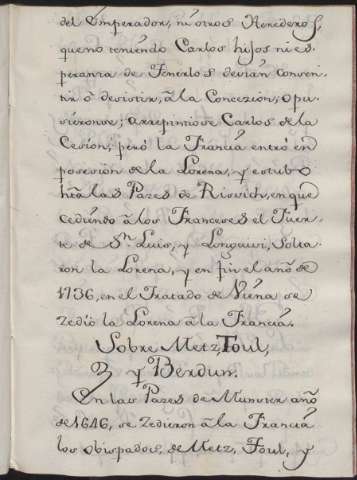 del Emperador, ni otros Herederos,
que no teniendo Carlos hijos ni es
peranza de Tenerlos devian conveni
nir ò desistir, â la Concezion, opu
sieronse; arrepintiose Carlos de la
Cesion, però la Francia entrò en
posesion de la Lorena, y estubo
hta las Pazes de Risvich, en que
cediendo â los Franceses el Fuer
te de Sn. Luis, y Longuuvi, solta
ron la Lorena, y en fin el año de
1736, en el Tratado de Viena se
zediò la Lorena â la Francia.
Sobre Metz, Toul,
y Berdun.
En las Pazes de Munster año
de 1646, se zedieron â la Francia
los obispados, de Metz, Toul, y